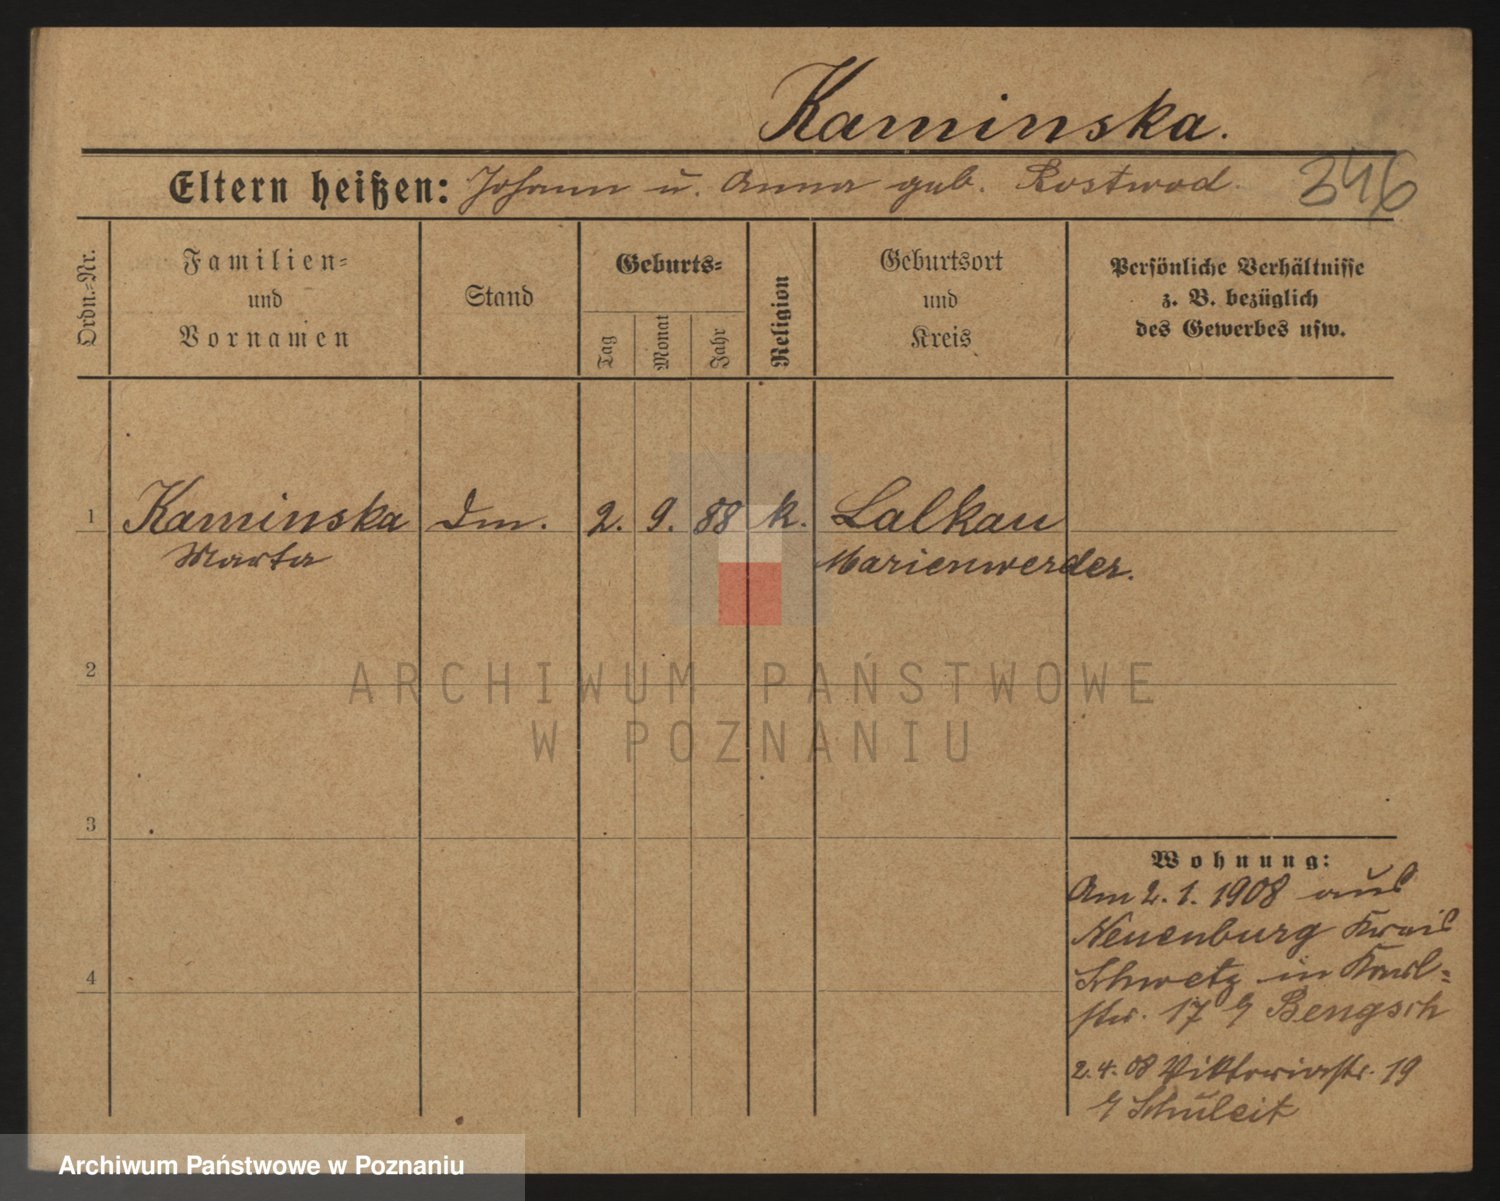 Kaminska.
Eltern heißen: Johann u. Anna geb. Rostwod.
346
Ordn.-Nr.
Familien-
und
Vornamen
Stand
Geburts-
Tag
Monat
Jahr
Religion
Geburtsort
und
Kreis
Persönliche Verhältnisse
z. B. bezüglich
des Gewerbes usw.
1 Kaminska Dm. 2. 9. 88 k. Lalkau
Marta Marienwerder.
2
ARCHIWUM PAŃSTWOWE
W POZNANIU
3
Wohnung:
Am 2. 1. 1908 aus
Neuenburg Kreis
4
Schwetz in Karl-
str. 17 b/ Bengsch
2. 4. 08 Viktoriastr. 19
b/ Schuleit
Archiwum Państwowe w Poznaniu